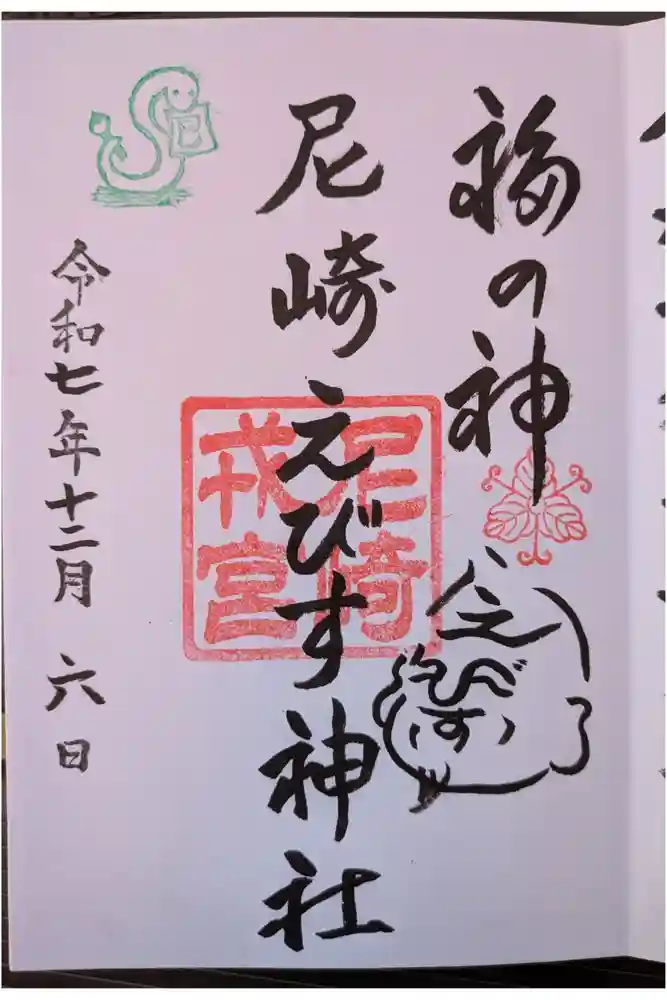 福の神
えびす
尼崎えびす神社
尼崎
戎宮
巳
令和七年十二月 六日